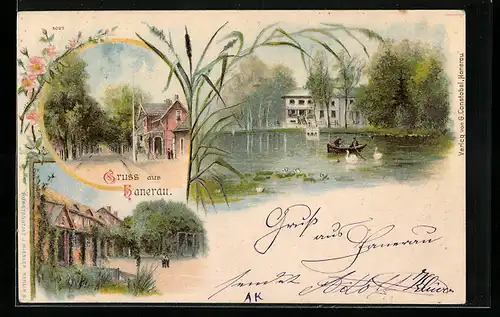 5027
Gruss aus
Hanerau.
Verlag von G. Constabel, Hanerau
Gruß
aus
Hanerau
sendet
AK